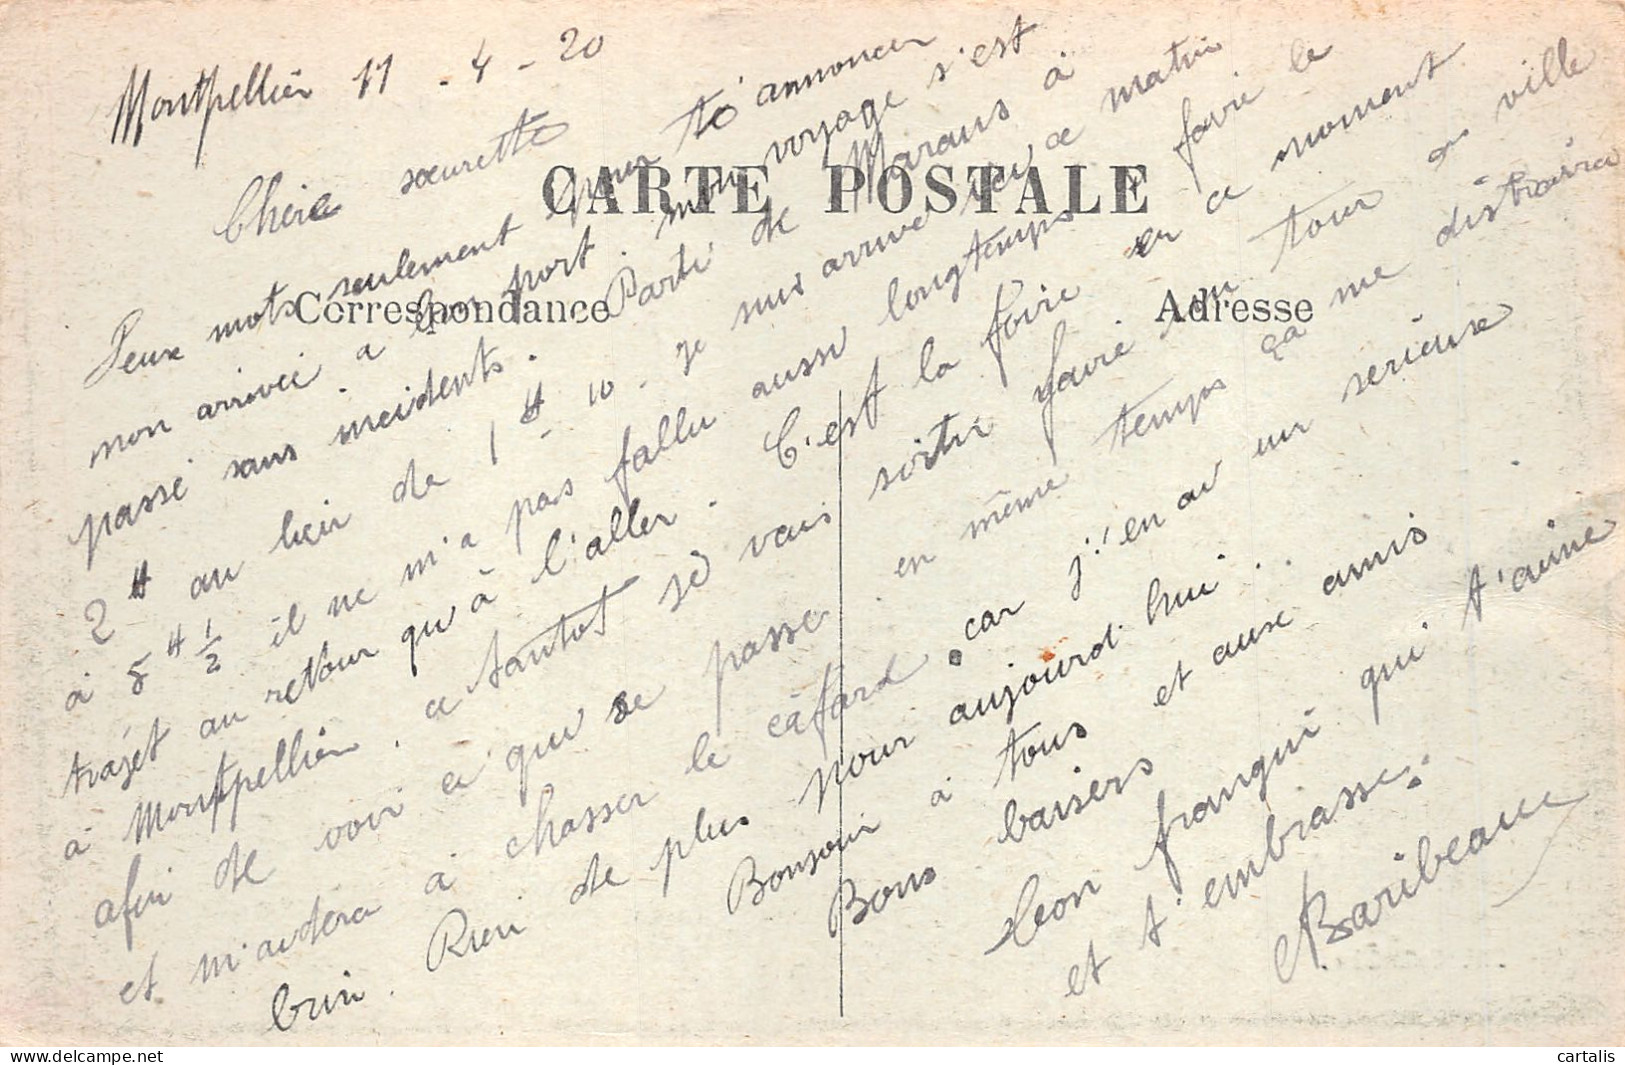 Montpellier 11 - 4 - 20
Chere sœurette
CARTE POSTALE
Correspondance
Adresse
Deux mots seulement pour t'annoncer
mon arrivée à bon port. mon voyage s'est
passé sans incidents. Parti de Marans à
2 H au lieu de 1 H 10 - je suis arrivé ici ce matin
à 8 H 1/2 il ne m'a pas fallu aussi longtemps faire le
trajet au retour qu'à l'aller. C'est la foire en ce moment
à Montpellier. a tantot je vais sortir faire un tour en ville
afin de voir ce qui se passe en même temps ça me distraira
et m'aidera à chasser le cafard. car j'en ai un serieux
brin. Rien de plus pour aujourd'hui..
Bonsoir à tous et aux amis.
Bons baisers
Leon frangui qui t'aime
et t'embrasse.
Baribeaux
cartalis